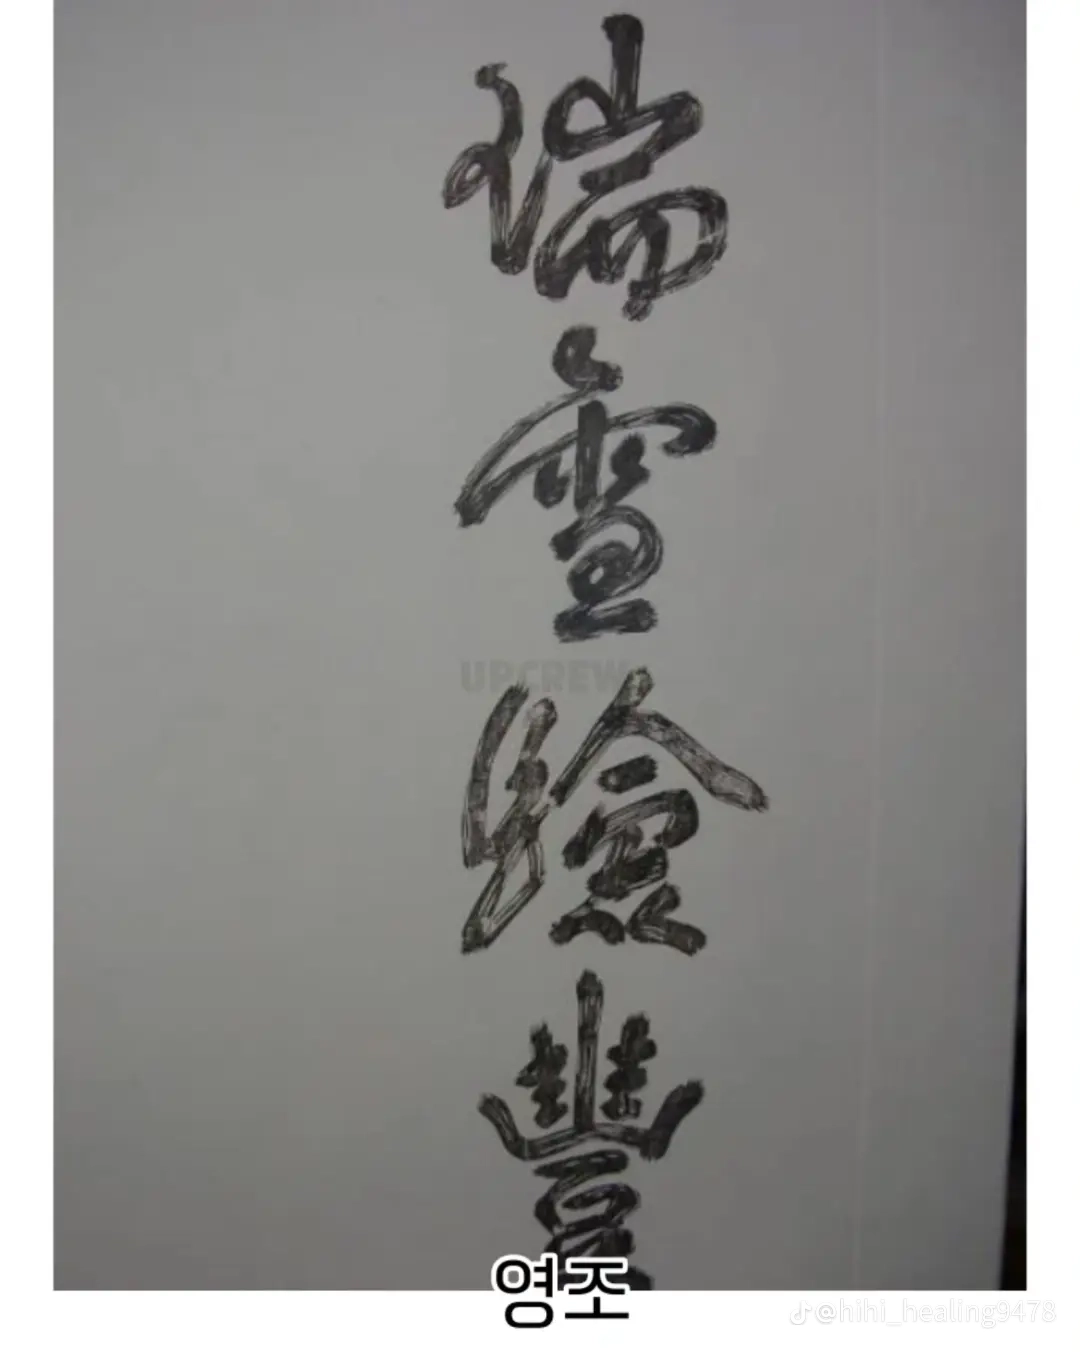 瑞雪驗豐
UPCREW
영조
@hihi_healing9478